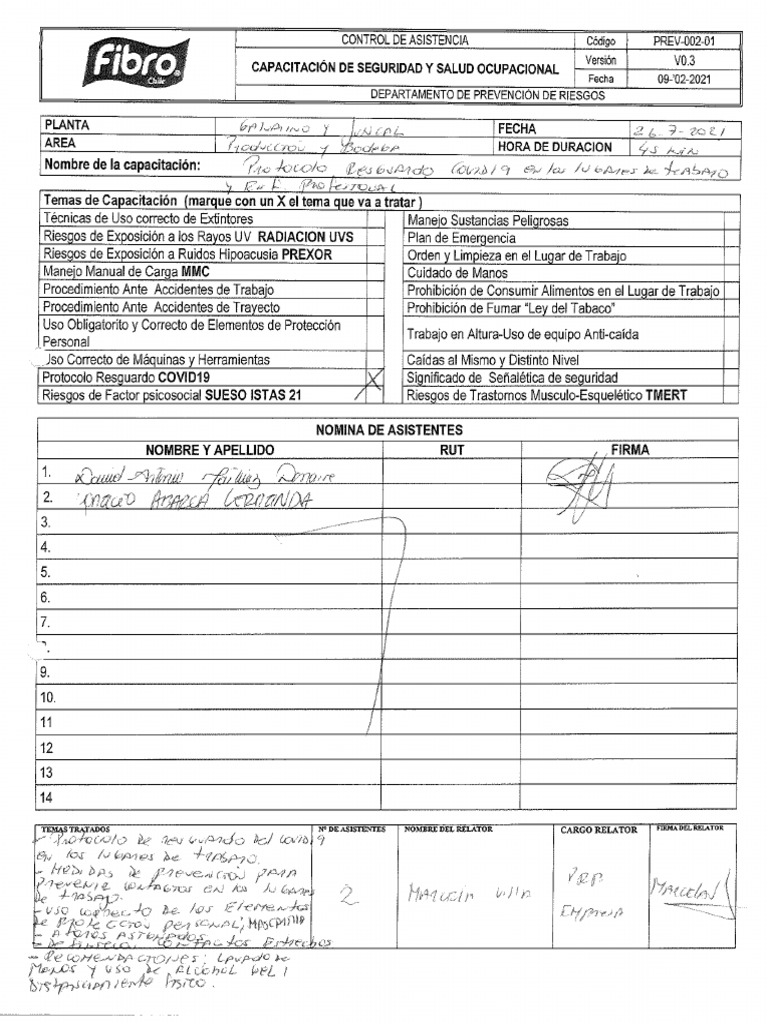 Fibro
Chile
CONTROL DE ASISTENCIA
CAPACITACIÓN DE SEGURIDAD Y SALUD OCUPACIONAL
DEPARTAMENTO DE PREVENCIÓN DE RIESGOS
Código PREV-002-01
Versión V0.3
Fecha 09-'02-2021
PLANTA y Juncal FECHA 26-7-2021
AREA Producción y Bodega HORA DE DURACION 45 min
Nombre de la capacitación: Protocolo Resguardo Covid19 en los lugares de trabajo
y Profesional
Temas de Capacitación (marque con un X el tema que va a tratar )
Técnicas de Uso correcto de Extintores Manejo Sustancias Peligrosas
Riesgos de Exposición a los Rayos UV RADIACION UVS Plan de Emergencia
Riesgos de Exposición a Ruidos Hipoacusia PREXOR Orden y Limpieza en el Lugar de Trabajo
Manejo Manual de Carga MMC Cuidado de Manos
Procedimiento Ante Accidentes de Trabajo Prohibición de Consumir Alimentos en el Lugar de Trabajo
Procedimiento Ante Accidentes de Trayecto Prohibición de Fumar "Ley del Tabaco"
Uso Obligatorito y Correcto de Elementos de Protección
Personal Trabajo en Altura-Uso de equipo Anti-caída
Uso Correcto de Máquinas y Herramientas Caídas al Mismo y Distinto Nivel
Protocolo Resguardo COVID19 X Significado de Señalética de seguridad
Riesgos de Factor psicosocial SUESO ISTAS 21 Riesgos de Trastornos Musculo-Esquelético TMERT
NOMINA DE ASISTENTES
NOMBRE Y APELLIDO RUT FIRMA
1. Daniel Antonio
2. Abarca
3.
4.
5.
6.
7.
9.
10.
11
12
13
14
TEMAS TRATADOS Nº DE ASISTENTES NOMBRE DEL RELATOR CARGO RELATOR FIRMA DEL RELATOR
- Protocolo de resguardo del covid19
en los lugares de trabajo.
- Medidas de prevención para
prevenir contagios en los lugares
de trabajo.
- uso correcto de los elementos
de protección personal, mascarilla
- Aforos
- contactos estrechos
- Recomendaciones: lavado de
manos y uso de alcohol gel
Distanciamiento físico.
2
Villa
Empresa